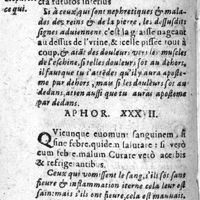 ce qui.
ctā futuros interius
Si à ceux qui sont nephretiques & mala-
des des reins & de la pierre, les dessusdits
signes aduiennent c'est la graisse nageant
au dessus de l'urine, & icelle pisse tout à
coup, & dis si douleurs vers les muscles
de l'eschine, si telles douleurs sōt au dehors,
il faut que tu t'attēdes qu'il y aura aposte-
me par dehors: mais si les douleurs sōt au
dedans, atten aussi que tu auras aposteme
par dedans.
APHOR. XXXVII.
QVicunque euomunt sanguinem, si
sine febre, quidem salutare: si verò
cum febre, malum. Curare verò acerbis
& refrigerantibus.
Ceux qui vomissent le sang, s'ils sōt sans
fieure & inflammation interne cela leur est
sain: mais s'ils ont fieure, cela est mauuais,